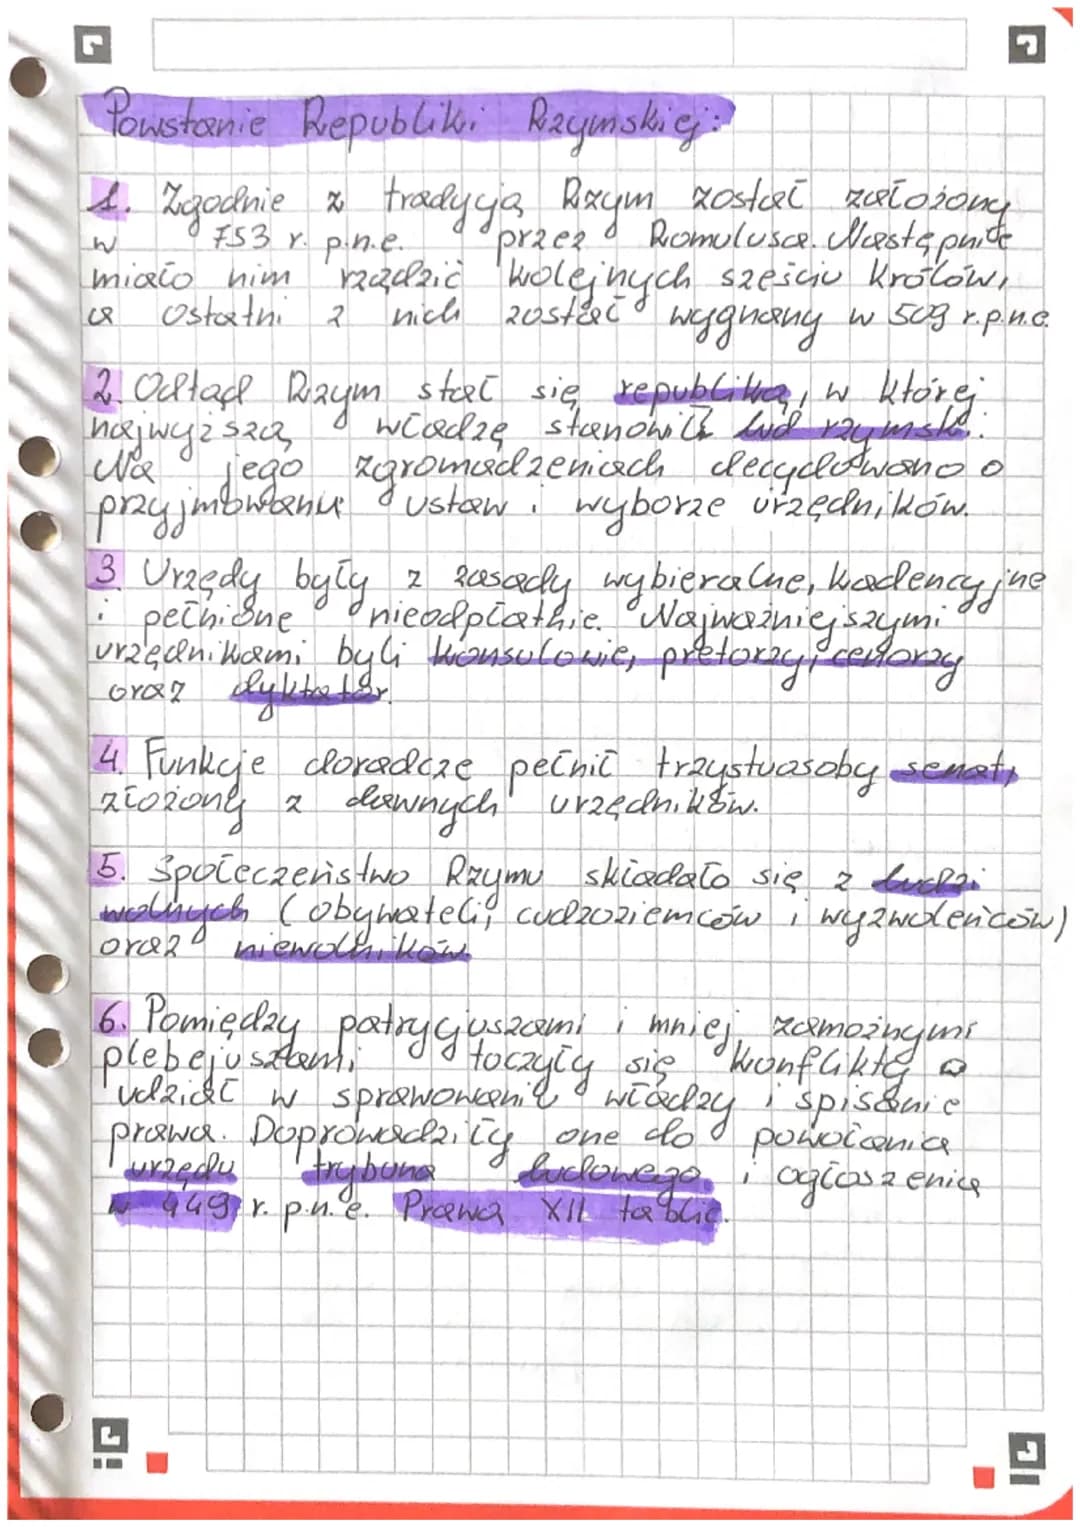 Powstanie Republiki Rzymskiej:
1. Zgodnie z tradycją Rzym został założony
w 753 r. p.n.e. przez Romulusa. Następnie
miało nim rządzić kolejnych sześciu królów,
a ostatni z nich został wygnany w 509 r.p.n.e.
2. Odtąd Rzym stał się republiką, w której
najwyższą władzę stanowił lud rzymski.
Na jego zgromadzeniach decydowano o
przyjmowaniu ustaw i wyborze urzędników.
3 Urzędy były z zasady wybieralne, kadencyjne
i pełnione nieodpłatnie. Najważniejszymi
urzędnikami byli konsulowie, pretorzy, cenzorzy
oraz dyktator.
4. Funkcje doradcze pełnił trzystuosoby senat,
złożony z dawnych urzędników.
5. Społeczeństwo Rzymu składało się z ludzi
wolnych (obywateli, cudzoziemców i wyzwoleńców)
oraz niewolników.
6. Pomiędzy patrycjuszami i mniej zamożnymi
plebejuszami toczyły się konflikty o
udział w sprawowaniu władzy i spisanie
prawa. Doprowadziły one do powołania
urzędu trybuna ludowego i ogłoszenia
w 449 r. p.n.e. Prawa XII tablic.